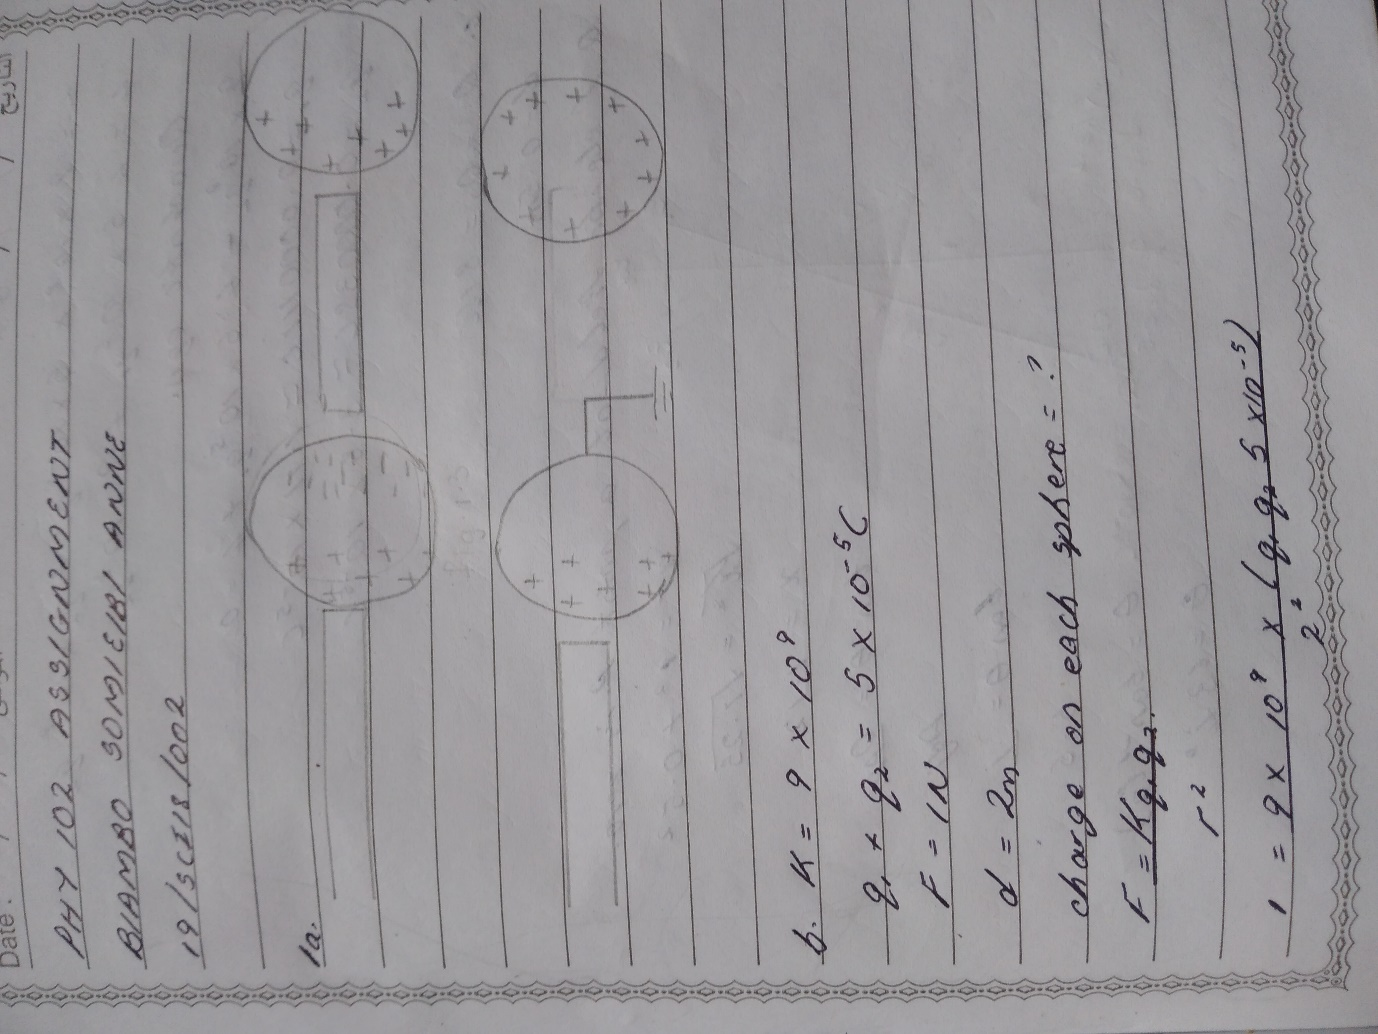 Date:
التاريخ
PHY 102 ASSIGNMENT
BIAMBO SOMIEIBI ANNE
19/SCI18/002
1a.
b. K = 9 x 10⁹
q₁ + q₂ = 5 x 10⁻⁵C
F = 1N
d = 2m
charge on each sphere = ?
F = Kq₁q₂.
r²
1 = 9 x 10⁹ x (q₁q₂ 5 x10⁻⁵)
2²